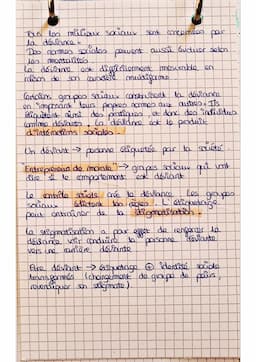 Tous les milieux sociaux sont concernés par
la déviance.
Des normes sociales peuvent aussi évoluer selon
les mentalités
La déviance est difficilement mesurable en
raison de son caractère multiforme
Certains groupes sociaux construisent la déviance
en imposant leurs propres normes aux autres. Ils
étiquètent ainsi des pratiques ou donc des individus
comme déviants. La déviance est le produit
d'interactions sociales
Un déviant → personne étiquetée par la société
"Entrepreneur de morale" → groupes sociaux qui vont
dire si le comportement est déviant
Le contrôle social crée la déviance. Les groupes
sociaux éditent les règles. L'étiquetage
peut entraîner de la stigmatisation.
La stigmatisation a pour effet de renforcer la
déviance voir conduire la personne déviante
vers une carrière déviante
Être déviant → étiquetage ⊕ identité sociale
transformés (changement de groupe de pairs,
revendiquer son stigmate)